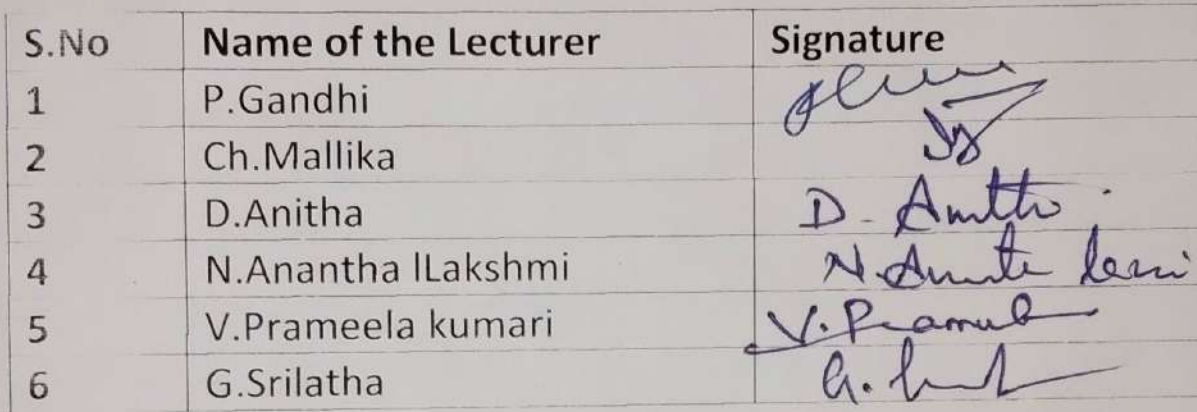 S.No Name of the Lecturer Signature
1 P.Gandhi
2 Ch.Mallika
3 D.Anitha D. Anitha
4 N.Anantha lLakshmi N.
5 V.Prameela kumari V. Prameela
6 G.Srilatha G.